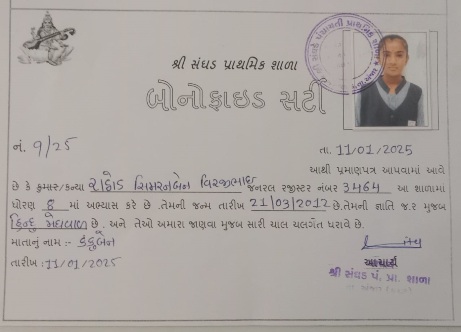 શ્રી સંઘડ પ્રાથમિક શાળા
બોનોફાઇડ સર્ટી
નં. 9/25
તા. 11/01/2025
આથી પ્રમાણપત્ર આપવામાં આવે
છે કે કુમાર/કન્યા રાઠોડ સિમરનબેન વિરજીભાઇ જનરલ રજીસ્ટર નંબર 3464 આ શાળામાં
ધોરણ 8 માં અભ્યાસ કરે છે .તેમની જન્મ તારીખ 21/03/2012 છે.તેમની જ્ઞાતિ જ.ર મુજબ
હિન્દુ મેઘવાળ છે. અને તેઓ અમારા જાણવા મુજબ સારી ચાલ ચલગત ધરાવે છે.
માતાનું નામ :- કંકુબેન
તારીખ :11/01/2025
આચાર્ય
શ્રી સંઘડ પં. પ્રા. શાળા